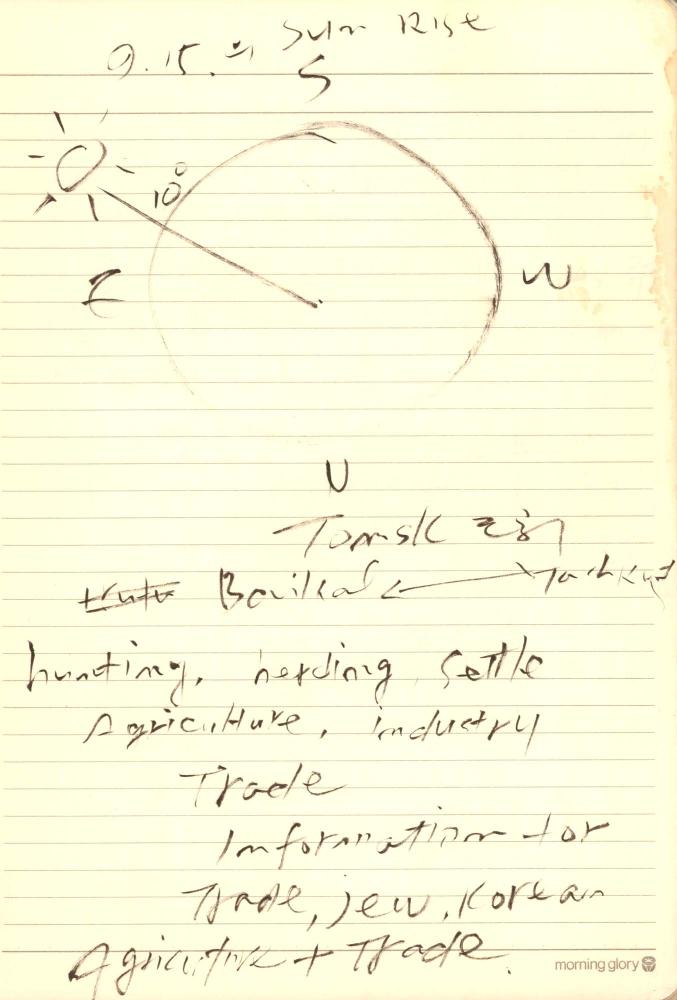 9.15.의 Sun Rise
S
10°
E
W
N
Tomsk
Baikal
hunting, herding, settle
Agriculture, industry
Trade
Information for
Trade, Jew, Korean
Agriculture + Trade.
morning glory